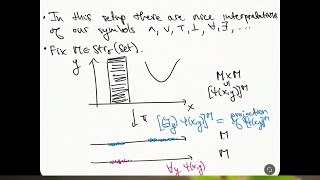 • In this setup there are nice interpretations
of our symbols ∧, ∨, ⊤, ⊥, ∀, ∃, ...
• Fix M ∈ Str_Σ(Set).
y
x
M × M
∪|
[ψ(x,y)]^M
↓ π
[∃y ψ(x,y)]^M = projection of [ψ(x,y)]^M
M
M
∀y. ψ(x,y)